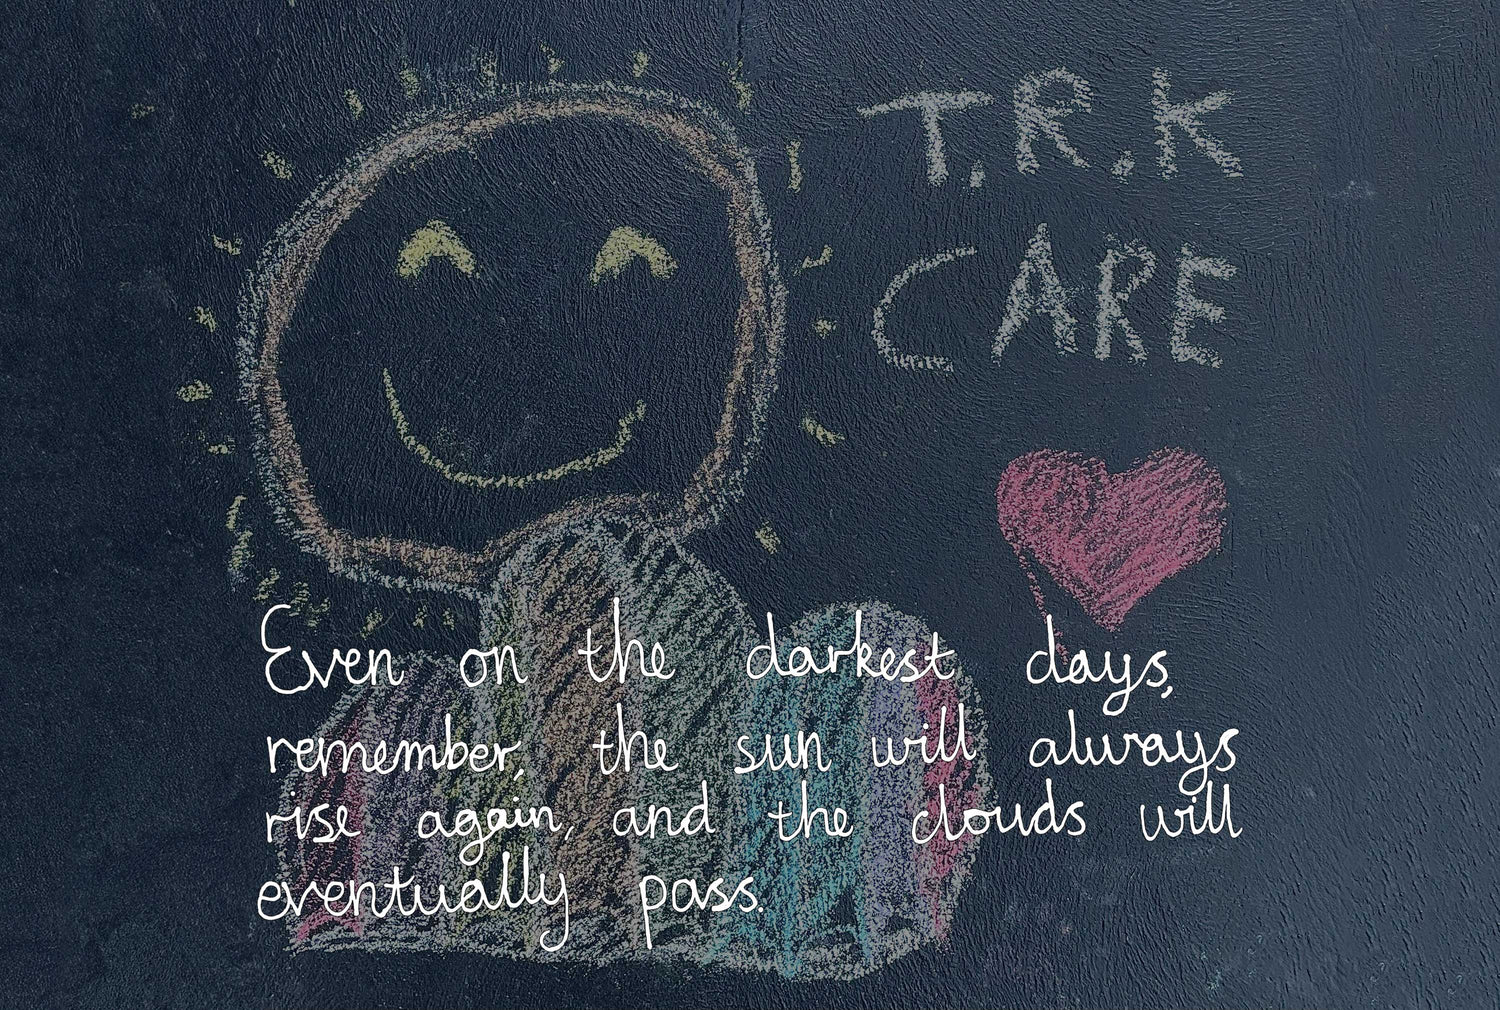 T.R.K
CARE
Even on the darkest days,
remember, the sun will always
rise again, and the clouds will
eventually pass.